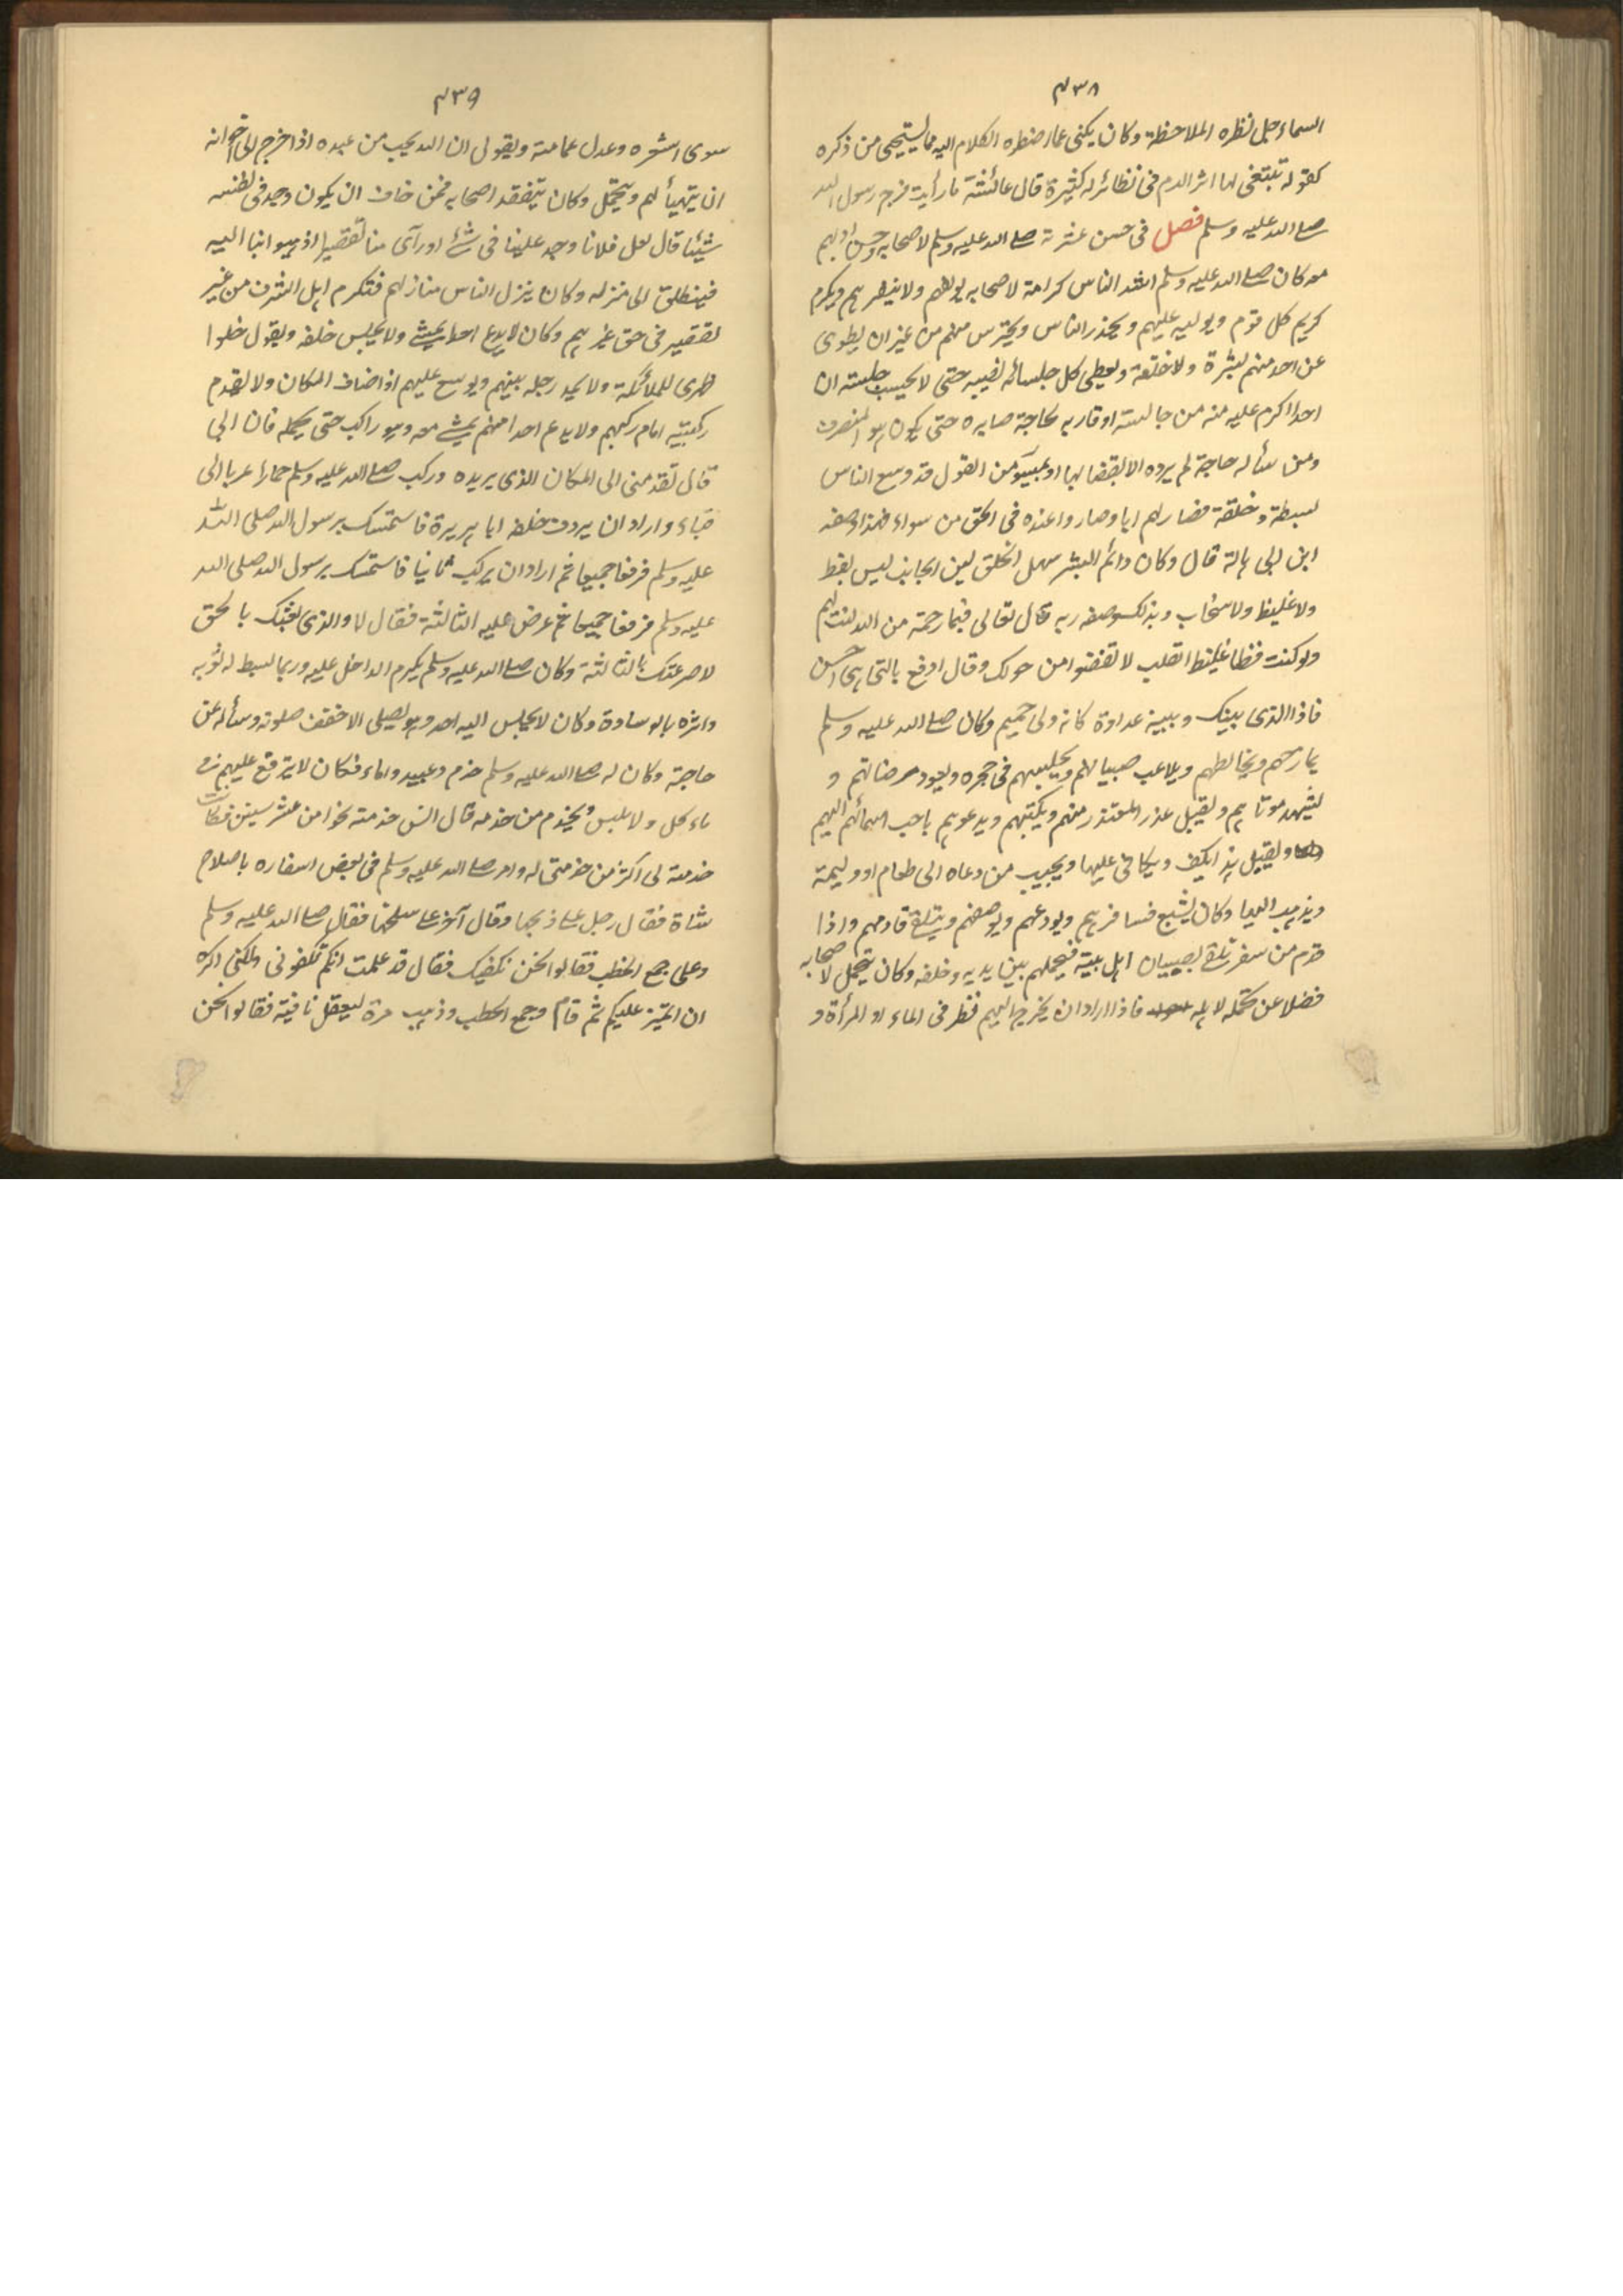 ۴۳۸
السماء جل نظره الملاحظة وكان يكنى عما اضطره الكلام اليه مما يستحيى من ذكره
كقوله تتبعى لها اثر الدم فى نظائر له كثيرة قال عائشة ما رأيت فرج رسول الله
صلى الله عليه وسلم فصل فى حسن عشرته صلى الله عليه وسلم لاصحابه وحسن ادبهم
معه كان صلى الله عليه وسلم اشد الناس كرامة لاصحابه يولفهم ولا ينفرهم ويكرم
كريم كل قوم ويوليه عليهم ويحذر الناس ويحترس منهم من غير ان يطوى
عن احد منهم بشرة ولا خلقه ويعطى كل جلسائه نصيبه حتى لا يحسب جليسه ان
احدا اكرم عليه منه من جالسه او قاربه لحاجة صابره حتى يكون هو المنصرف
ومن سأله حاجة لم يرده الا بقضائها او بميسور من القول قد وسع الناس
بسطه وخلقه فصار لهم ابا وصاروا عنده فى الحق من سواء فهذا وصفه
ابن ابى هالة قال وكان دائم البشر سهل الخلق لين الجانب ليس بفظ
ولا غليظ ولا سخاب وبذلك وصفه ربه قال تعالى فبما رحمة من الله لنت لهم
ولو كنت فظا غليظ القلب لا تفضوا من حولك وقال ادفع بالتى هى احسن
فاذا الذى بينك وبينه عداوة كانه ولى حميم وكان صلى الله عليه وسلم
يمازحهم ويخالطهم ويلاعب صبيانهم ويجلسهم فى حجره ويعود مرضاتهم و
يشهد موتاهم ويقبل عذر المعتذر منهم ويكنيهم ويدعوهم باحب اسمائهم اليهم
ويقبل ويكافى عليها ويجيب من دعاه الى طعام او وليمة
ويذهب اليها وكان يشيع مسافرهم ويودعهم ويوصيهم ويتلقى قادمهم واذا
قدم من سفر تلقى بصبيان اهل بيته فيحملهم بين يديه وخلفه وكان يتجمل لاصحابه
فضلا عن تجمله لاهله فاذا اراد ان يخرج اليهم نظر فى الماء او المرأة و
۴۳۹
سوى اشعره وعدل عمامته ويقول ان الله يحب من عبده اذا خرج الى اخوانه
ان يتهيأ لهم ويتجمل وكان يتفقد اصحابه فمن خاف ان يكون وجد فى نفسه
شيئا قال لعل فلانا وجد علينا فى شئ او رآى منا تقصيرا اذهبوا بنا اليه
فينطلق الى منزله وكان ينزل الناس منازلهم فتكرم اهل الشرف من غير
تقصير فى حق غيرهم وكان لا يدع احدا يمشى ولا يجلس خلفه ويقول خلوا
ظهرى للملائكة ولا يمد رجله بينهم ويوسع عليهم اذا ضاف المكان ولا تقدم
ركبتيه امام ركبهم ولا يدع احدا منهم يمشى معه وهو راكب حتى يحمله فان ابى
قال تقدمنى الى المكان الذى يريده وركب صلى الله عليه وسلم حمارا عريا الى
قباء واراد ان يردف خلفه ابا هريرة فاستمسك برسول الله صلى الله
عليه وسلم فوقعا جميعا ثم اراد ان يركب ثانيا فاستمسك برسول الله صلى الله
عليه وسلم فوقعا جميعا ثم عرض عليه الثالثة فقال لا والذى بعثك بالحق
لا صرعتك بالثالثة وكان صلى الله عليه وسلم يكرم الداخل عليه وربما بسط له ثوبه
واثره بالوسادة وكان لا يجلس اليه احد وهو يصلى الا خفف صلوته وسأله عن
حاجة وكان له صلى الله عليه وسلم خدم وعبيد واماء فكان لا يترفع عليهم فى
مأكل ولا ملبس ويخدم من خدمه قال انس خدمته نحوا من عشر سنين فكانت
خدمته لى اكثر من خدمتى له وامر صلى الله عليه وسلم فى بعض اسفاره باصلاح
شاة فقال رجل على ذبحها وقال آخر على سلخها فقال صلى الله عليه وسلم
وعلى جمع الحطب فقالوا نحن نكفيك فقال قد علمت انكم تكفونى ولكنى اكره
ان اتميز عليكم ثم قام وجمع الحطب وذهب مرة ليعقل ناقته فقالوا نحن